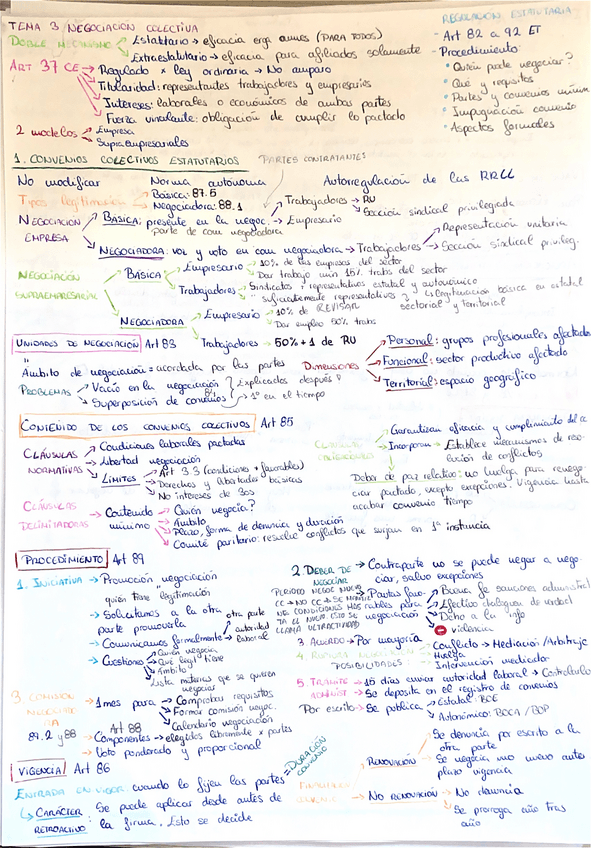 TEMA 3 NEGOCIACIÓN COLECTIVA
DOBLE MECANISMO
Estatutario → eficacia erga omnes (PARA TODOS)
Extraestatutario → eficacia para afiliados solamente
ART 37 CE → Regulado x ley ordinaria → No amparo
Titularidad: representantes trabajadores y empresarios
Intereses: laborales o económicos de ambas partes
Fuerza vinculante: obligación de cumplir lo pactado
2 modelos → Empresa
Supraempresariales
REGULACIÓN ESTATUTARIA
- Art 82 a 92 ET
- Procedimiento:
• Quién puede negociar?
• Qué y requisitos
• Partes y contenido mínimo
• Impugnación convenio
• Aspectos formales
1. CONVENIOS COLECTIVOS ESTATUTARIOS
PARTES CONTRATANTES
No modificar Norma autónoma Autorregulación de las RRLL
Tipos legitimación Básica: 87.5
Negociadora: 88.1
NEGOCIACIÓN EMPRESA
BÁSICA: presente en la negoc. → Empresario
parte de com negociadora
Trabajadores → RU
Sección sindical privilegiada
NEGOCIADORA: voz y voto en com negociadora → Trabajadores → Representación unitaria
Sección sindical privileg.
NEGOCIACIÓN SUPRAEMPRESARIAL
BÁSICA → Empresario → 10% de las empresas del sector
Dar trabajo mín 15% trabs del sector
Trabajadores → Sindicatos + representativos estatal y autonómico
" suficientemente representativos? Legitimación básica en estatal
10% de REVISAR sectorial y territorial
NEGOCIADORA → Empresario
Dar empleo 50% trabs
Trabajadores → 50% + 1 de RU
UNIDADES DE NEGOCIACIÓN Art 83
Ámbito de negociación = acordada por las partes
PROBLEMAS → Vacío en la negociación
Superposición de convenios
Explicados después?
→ 1º en el tiempo
Dimensiones
Personal: grupos profesionales afectados
Funcional: sector productivo afectado
Territorial: espacio geográfico
CONTENIDO DE LOS CONVENIOS COLECTIVOS Art 85
CLÁUSULAS NORMATIVAS
Condiciones laborales pactadas
Libertad negociación
LÍMITES → Art 3.3 (condiciones + favorables)
Derechos y libertades básicas
No intereses de 3os
Garantizan eficacia y cumplimiento del cc
Incorporan → Establece mecanismos de resolución de conflictos
Deber de paz relativo: no huelga para renegociar pactado, excepto excepciones. Vigencia hasta
acabar convenio tiempo
CLÁUSULAS DELIMITADORAS → Contenido mínimo
Quién negocia?
Ámbito
Plazo, forma de denuncia y duración
Comité paritario: resuelve conflictos que surjan en 1ª instancia
PROCEDIMIENTO Art 89
1. INICIATIVA → Promoción negociación
quién tiene legitimación
→ Solicitamos a la otra parte promoverla
→ Comunicamos formalmente → otra parte
autoridad laboral
→ Cuestiones → Quién negocia
Qué legit tiene
Ámbito
Lista materias que se quieren
negociar
2. DEBER DE NEGOCIAR → Contraparte no se puede negar a negociar, salvo excepciones
PERIODO NEGOC NUEVO
CC → NO CC → SE MANTIENE
CONDICIONES HASTA EL NUEVO. ESTO SE
LLAMA ULTRACTIVIDAD
→ Pautas favorables para negociación
Buena fe sanciones administrat
Efectivo diálogo de verdad
Dcho a la info
⊖ violencia
3. ACUERDO → Por mayoría
4. POSIBILIDADES → Conflicto → Mediación / Arbitraje
Huelga
Intervención mediador
5. TRÁMITE ADMINIST → 15 días enviar autoridad laboral → Controlarlo
→ Se deposita en el registro de convenios
Por escrito → Se publica → Estatal: BOE
Autonómico: BOCA / BOP
3. COMISIÓN NEGOCIADORA 87.2 y 88
→ 1 mes para → Comprobar requisitos
Formar comisión negoc.
Calendario negociación
Art 88
→ Componentes → elegidos libremente x partes
→ Voto ponderado y proporcional
VIGENCIA Art 86
ENTRADA EN VIGOR cuando lo fijen las partes
= DURACIÓN CONVENIO
→ CARÁCTER RETROACTIVO: Se puede aplicar desde antes de
la firma. Esto se decide
RENOVACIÓN → Se denuncia por escrito a la
otra parte
→ Se negocia uno nuevo antes
plazo vigencia
→ No RENOVACIÓN → No denuncia
Se prorroga año tras
año